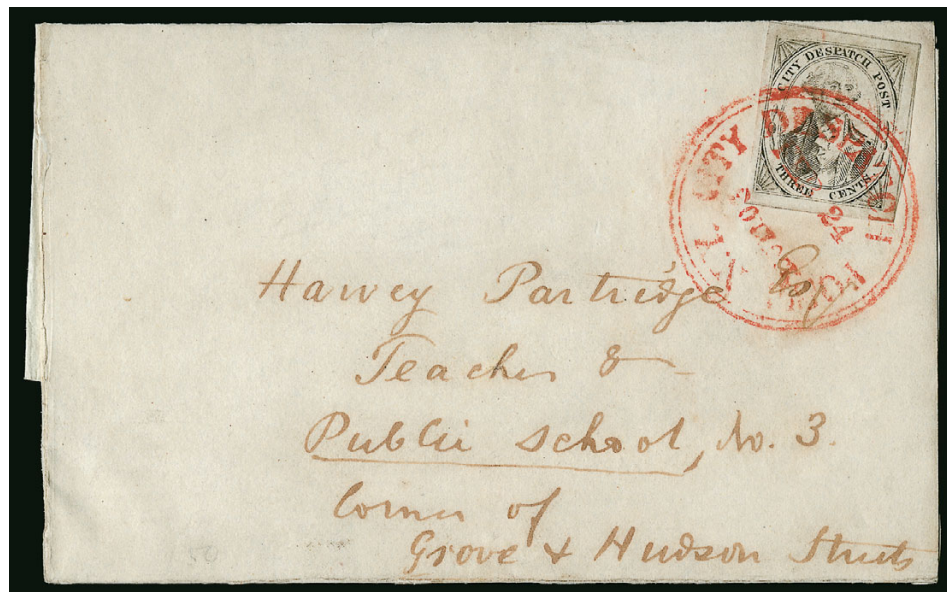 CITY DESPATCH POST
THREE CENTS.
CITY DESPATCH
24
Harvey Partridge Esq
Teacher &
Public School, No. 3.
Corner of
Grove & Hudson Streets